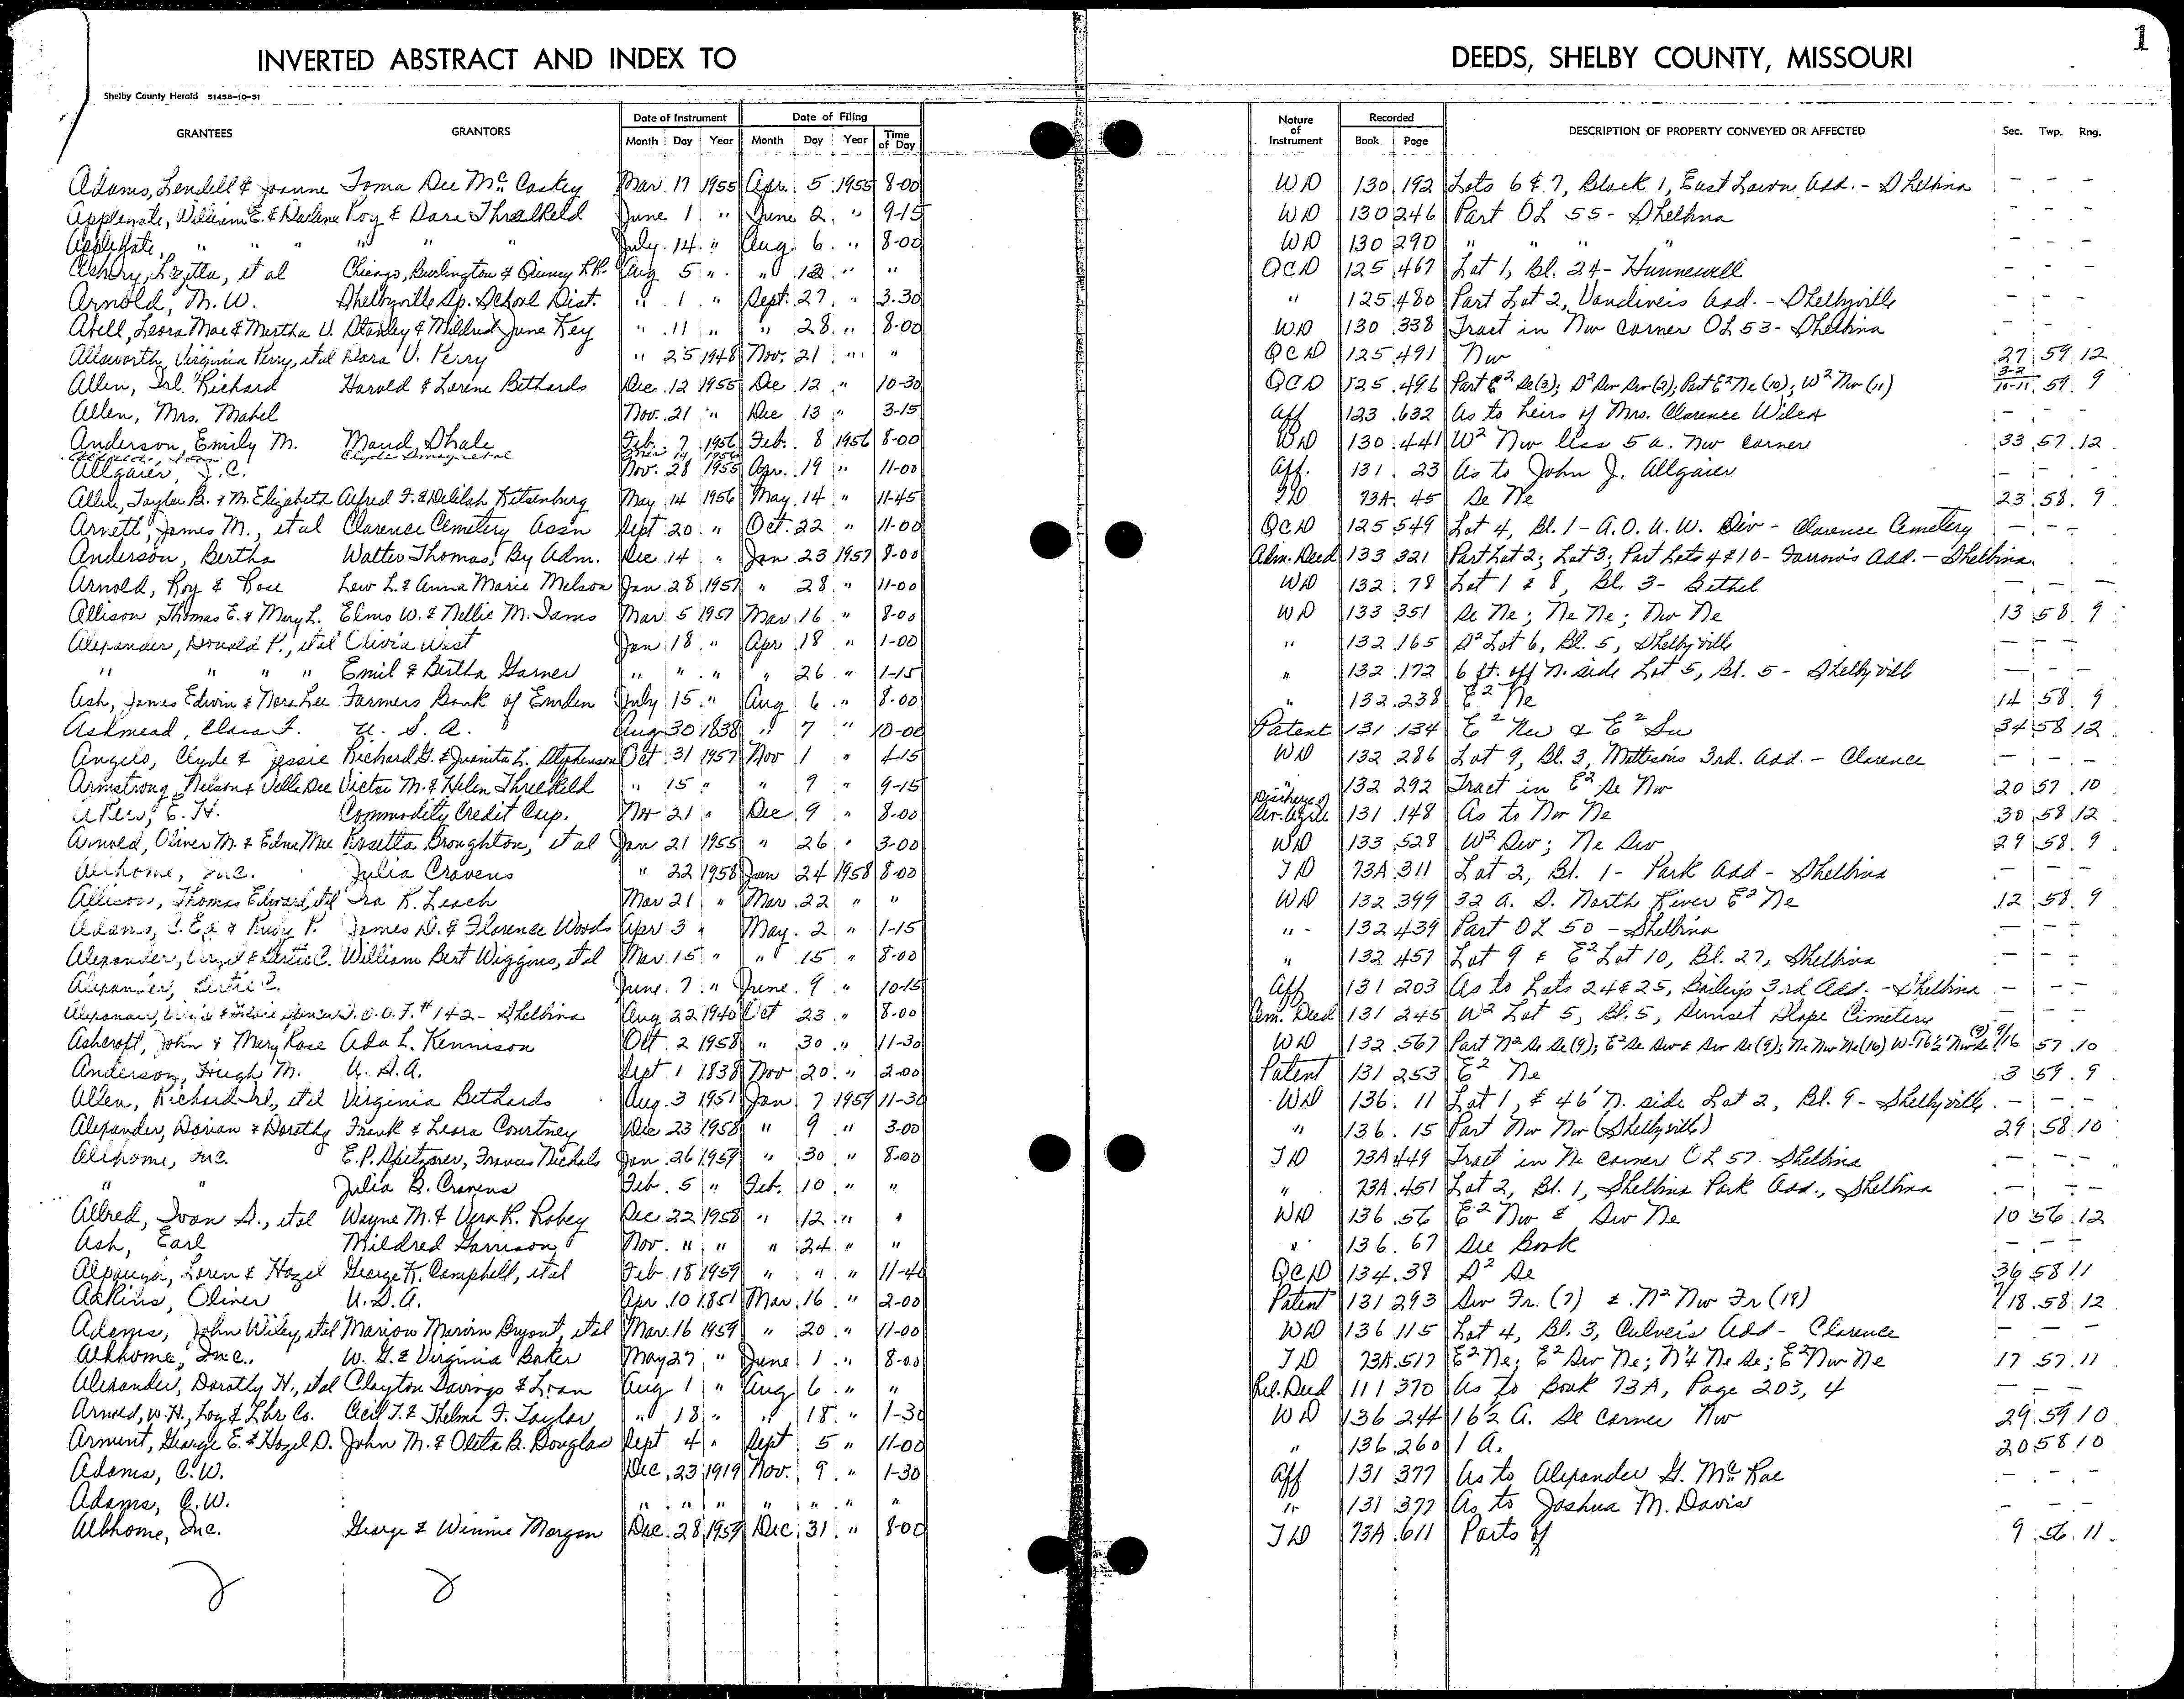 1
INVERTED ABSTRACT AND INDEX TO DEEDS, SHELBY COUNTY, MISSOURI
Shelby County Herald 51458-10-51
GRANTEES GRANTORS Date of Instrument Month Day Year Date of Filing Month Day Year Time of Day Nature of Instrument Recorded Book Page DESCRIPTION OF PROPERTY CONVEYED OR AFFECTED Sec. Twp. Rng.
Adams, Lendell & Joanne Toma Dee McCaskey Mar. 17 1955 Apr. 5 1955 8-00 WD 130 192 Lots 6 & 7, Block 1, East Lawn Add. - Shelbina - - -
Applegate, William E. & Darlene Roy & Dara Threlkeld June 1 " June 2 " 9-15 WD 130 246 Part OL 55 - Shelbina - - -
Applegate, " " " " " " July 14 " Aug. 6 " 8-00 WD 130 290 " " " " - - -
Asbury, Lizetta, et al Chicago, Burlington & Quincy RR. Aug 5 " " 12 " " QCD 125 467 Lot 1, Bl. 24 - Hunnewell - - -
Arnold, M. W. Shelbyville Sp. School Dist. " 1 " Sept. 27 " 3-30 " 125 480 Part Lot 2, Vandiver's Add. - Shelbyville - - -
Abell, Leora Mae & Martha V. Stanley & Mildred June Key " 11 " " 28 " 8-00 WD 130 338 Tract in Nw corner OL 53 - Shelbina - - -
Allsworth, Virginia Perry, et al Dora V. Perry " 25 1948 Nov. 21 " " QCD 125 491 Nw 27 59 12
Allen, Irl Richard Harold & Lorene Bethards Dec. 12 1955 Dec 12 " 10-30 QCD 125 496 Part E² Se (3); S² Sw Sw (2); Part E² Ne (10); W² Nw (11) 3-2 10-11 59 9
Allen, Mrs. Mabel Nov. 21 " Dec 13 " 3-15 Aff 123 632 As to heirs of Mrs. Clarence Wilcox - - -
Anderson, Emily M. Maud Shale Feb. 7 1956 Feb. 8 1956 8-00 WD 130 441 W² Nw less 5 a. Nw corner 33 57 12
Allgaier, J. C. Nov. 28 1955 Apr. 19 " 11-00 Aff. 131 23 As to John J. Allgaier - - -
Allen, Taylor B. & M. Elizabeth Alfred F. & Delilah Kitsenburg May 14 1956 May 14 " 11-45 TD 73A 45 Se Ne 23 58 9
Arnett, James M., et al Clarence Cemetery Assn Sept 20 " Oct. 22 " 11-00 QCD 125 549 Lot 4, Bl. 1 - A.O.U.W. Div - Clarence Cemetery - - -
Anderson, Bertha Walter Thomas, By Adm. Dec 14 " Jan 23 1957 8-00 Adm. Deed 133 321 Part Lot 2; Lot 3; Part Lots 4 & 10 - Farrow's Add. - Shelbina
Arnold, Roy & Rose Lew L. & Anna Marie Melson Jan 28 1957 " 28 " 11-00 WD 132 78 Lot 1 & 8, Bl. 3 - Bethel - - -
Allison, Thomas E. & Mary L. Elmo W. & Nellie M. Iams Mar. 5 1957 Mar 16 " 8-00 WD 133 351 Se Ne; Ne Ne; Nw Ne 13 58 9
Alexander, Donald P., et al Olivia West Jan 18 " Apr 18 " 1-00 " 132 165 S² Lot 6, Bl. 5, Shelbyville - - -
" " " " Emil & Bertha Garner " " " " 26 " 1-15 " 132 172 6 ft. off N. side Lot 5, Bl. 5 - Shelbyville - - -
Ash, James Edwin & Nora Lee Farmers Bank of Emden July 15 " Aug 6 " 8-00 " 132 238 E² Ne 14 58 9
Ashmead, Claus F. U. S. A. Aug 30 1838 " 7 " 10-00 Patent 131 134 E² Nw & E² Sw 34 58 12
Angelo, Clyde & Jessie Richard G. & Juanita L. Stephenson Oct 31 1957 Nov 1 " 4-15 WD 132 286 Lot 9, Bl. 3, Mattison's 3rd. Add. - Clarence - - -
Armstrong, Nelson & Velle Dee Victor M. & Helen Threlkeld " 15 " " 9 " 9-15 " 132 292 Tract in E² Se Nw 20 57 10
E. H. Commodity Credit Corp. Nov 21 " Dec 9 " 8-00 Discharge of 131 148 As to Nw Ne 30 58 12
Arnold, Oliver M. & Edna Mae Rosetta Broughton, et al Jan 21 1955 " 26 " 3-00 WD 133 528 W² Sw; Ne Sw 29 58 9
Abhome, Inc. Julia Cravens " 22 1958 Jan 24 1958 8-00 TD 73A 311 Lot 2, Bl. 1 - Park Add - Shelbina - - -
Allison, Thomas Edward, et al Ira K. Leach Mar 21 " Mar. 22 " " WD 132 399 32 a. S. North River E² Ne 12 58 9
Adams, C. Ed & Ruby P. James D. & Florence Woods Apr. 3 " May 2 " 1-15 " 132 439 Part OL 50 - Shelbina - - -
Alexander, Virgil & Lertie C. William Bert Wiggins, et al Mar. 15 " " 15 " 8-00 " 132 457 Lot 9 & E² Lot 10, Bl. 27, Shelbina - - -
Alexander, C. June 7 " June 9 " 10-15 Aff 131 203 As to Lots 24 & 25, Bailey's 3rd Add. - Shelbina - - -
Alexander, I.O.O.F. #142 - Shelbina Aug 22 1940 Oct 23 " 8-00 Cem. Deed 131 245 W² Lot 5, Bl. 5, Sunset Slope Cimetery - - -
Ashcroft, John & Mary Rose Ada L. Kennison Oct. 2 1958 " 30 " 11-30 WD 132 567 Part N² Se Se (9); E² Se Sw & Sw Se (9); Ne Nw Ne (16) 9/16 57 10
Anderson, Hugh M. U. S. A. Sept. 1 1838 Nov 20 " 2-00 Patent 131 253 E² Ne 3 59 9
Allen, Richard Irl, et al Virginia Bethards Aug. 3 1951 Jan 7 1959 11-30 WD 136 11 Lot 1, & 46' N. side Lot 2, Bl. 9 - Shelbyville - - -
Alexander, Dorian & Dorothy Frank & Leora Courtney Dec 23 1958 " 9 " 3-00 " 136 15 Part Nw Nw (Shelbyville) 29 58 10
Abhome, Inc. E. P. Spitzner, Frances Nichols Jan. 26 1959 " 30 " 8-00 TD 73A 449 Tract in Ne corner OL 57 Shelbina - - -
" " Julia B. Cravens Feb. 5 " Feb. 10 " " " 73A 451 Lot 2, Bl. 1, Shelbina Park Add., Shelbina - - -
Allred, Ivan S., et al Wayne M. & Vera R. Robey Dec 22 1958 " 12 " " WD 136 56 E² Nw & Sw Ne 10 56 12
Ash, Earl Mildred Garrison Nov. " " " 24 " " " 136 67 See Book - - -
Alpaugh, Loren & Hazel George K. Campbell, et al Feb. 18 1959 " " " 11-40 QCD 134 38 S² Se 36 58 11
Adkins, Oliver U. S. A. Apr 10 1851 Mar. 16 " 2-00 Patent 131 293 Sw Fr. (7) & N² Nw Fr (18) 7/18 58 12
Adams, John Wiley, et al Marion Marvin Bryant, et al Mar. 16 1959 " 20 " 11-00 WD 136 115 Lot 4, Bl. 3, Culver's Add - Clarence - - -
Abhome, Inc., W. G. & Virginia Baker May 27 " June 1 " 8-00 TD 73A 517 E² Ne; E² Sw Ne; N¼ Ne Se; E² Nw Ne 17 57 11
Alexander, Dorothy H., et al Clayton Savings & Loan Aug 1 " Aug 6 " " Rel. Deed 111 370 As to Book 73A, Page 203, 4 - - -
Arnold, W. H., Log & Lbr Co. Cecil T. & Thelma F. Taylor " 18 " " 18 " 1-30 WD 136 244 16½ A. Se corner Nw 29 59 10
Arment, George E. & Hazel D. John M. & Oleta B. Douglas Sept 4 " Sept. 5 " 11-00 " 136 260 1 A. 20 58 10
Adams, C. W. Dec 23 1919 Nov. 9 " 1-30 Aff 131 377 As to Alexander G. McRae - - -
Adams, C. W. " " " " " " " " 131 377 As to Joshua M. Davis - - -
Abhome, Inc. George & Winnie Morgan Dec. 28 1959 Dec. 31 " 8-00 TD 73A 611 Parts of 9 56 11